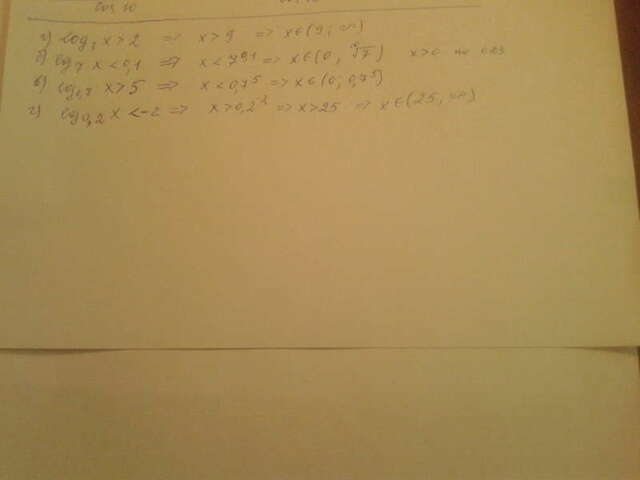 cos 10
log₃ x > 2 ⇒ x > 9 ⇒ x∈(9; ∞)
б) log₇ x < 0,1 ⇒ x < 7^0,1 ⇒ x∈(0, ¹⁰√7) x>0
в) log₀,₇ x > 5 ⇒ x < 0,7⁵ ⇒ x∈(0; 0,7⁵)
г) log₀,₂ x < -2 ⇒ x > 0,2⁻² ⇒ x > 25 ⇒ x∈(25; ∞)